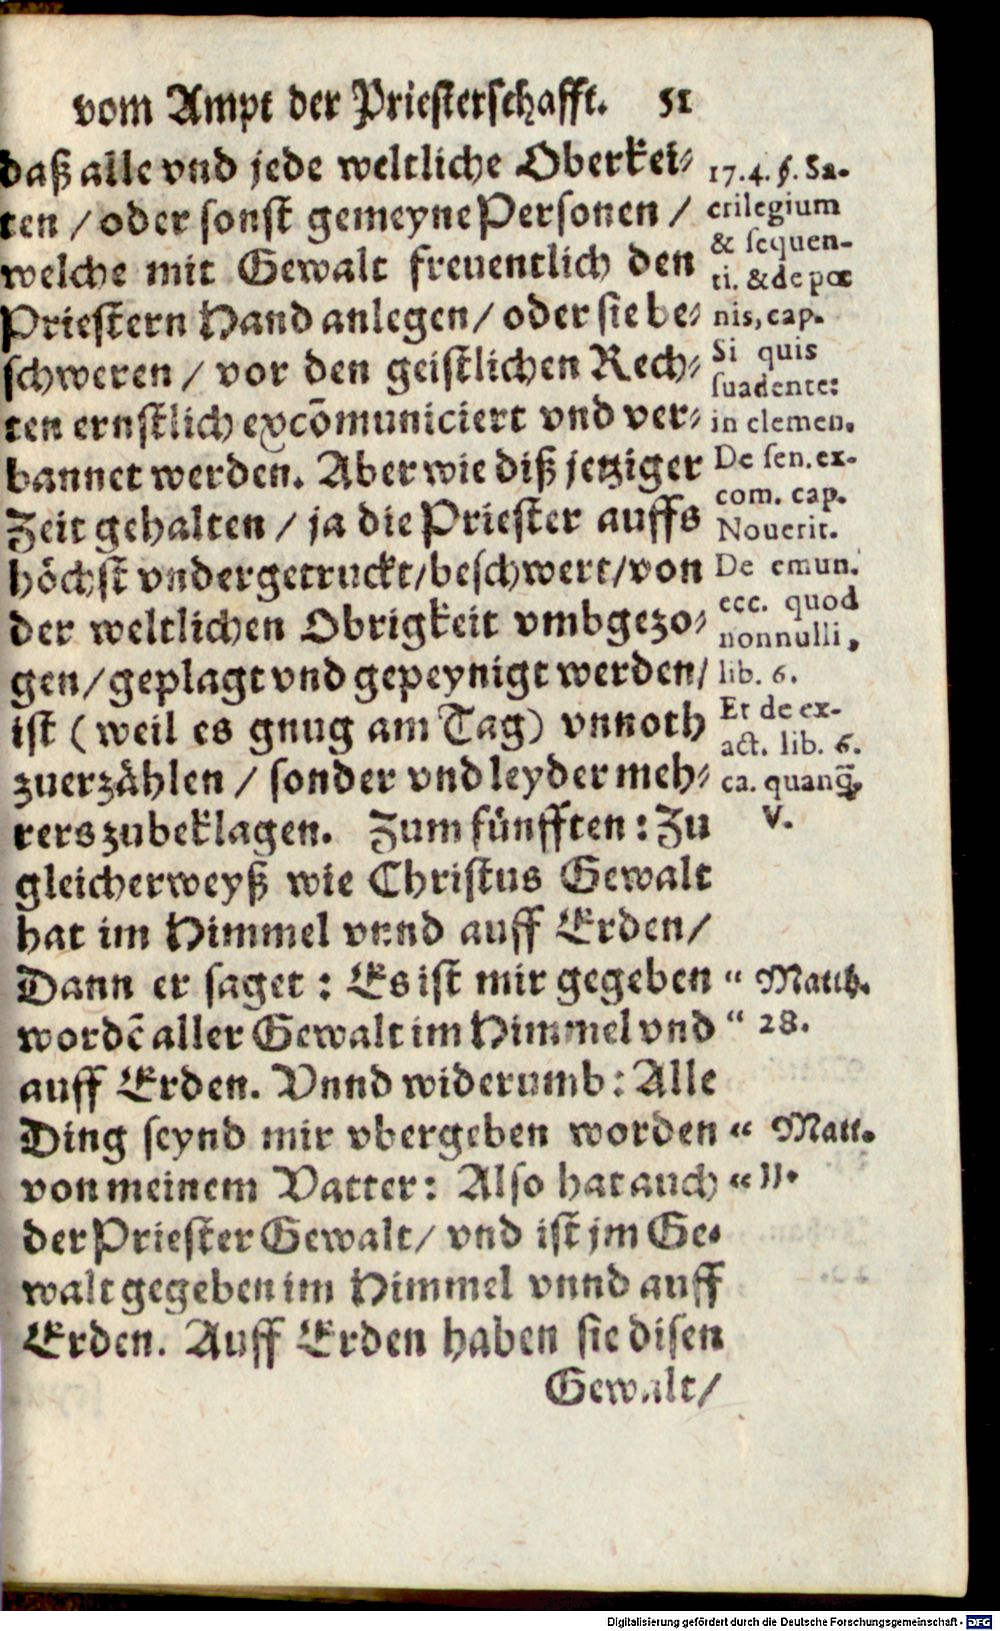 vom Ampt der Priesterschafft. 51
daß alle vnd jede weltliche Oberkei-
ten / oder sonst gemeyne Personen /
welche mit Gewalt freuentlich den
Priestern Hand anlegen / oder sie be-
schweren / vor den geistlichen Rech-
ten ernstlich excōmuniciert vnd ver-
bannet werden. Aber wie diß jetziger
Zeit gehalten / ja die Priester auffs
höchst vndergetruckt / beschwert / von
der weltlichen Obrigkeit vmbgezo-
gen / geplagt vnd gepeynigt werden /
ist ( weil es gnug am Tag) vnnoth
zuerzählen / sonder vnd leyder meh-
rers zubeklagen. Zum fünfften : Zu
gleicherweyß wie Christus Gewalt
hat im Himmel vnnd auff Erden /
Dann er saget : Es ist mir gegeben “
wordē aller Gewalt im Himmel vnd “
auff Erden. Vnnd widerumb : Alle
Ding seynd mir vbergeben worden “
von meinem Vatter : Also hat auch “
der Priester Gewalt / vnd ist jm Ge-
walt gegeben im Himmel vnnd auff
Erden. Auff Erden haben sie disen
Gewalt /
17. 4. §. Sa-
crilegium
& sequen-
ti. & de pœ
nis, cap.
Si quis
suadente:
in clemen.
De sen. ex-
com. cap.
Nouerit.
De emun.
ecc. quod
nonnulli,
lib. 6.
Et de ex-
act. lib. 6.
ca. quanq̃,
V.
Matth.
28.
Matt.
11.
Digitalisierung gefördert durch die Deutsche Forschungsgemeinschaft - DFG